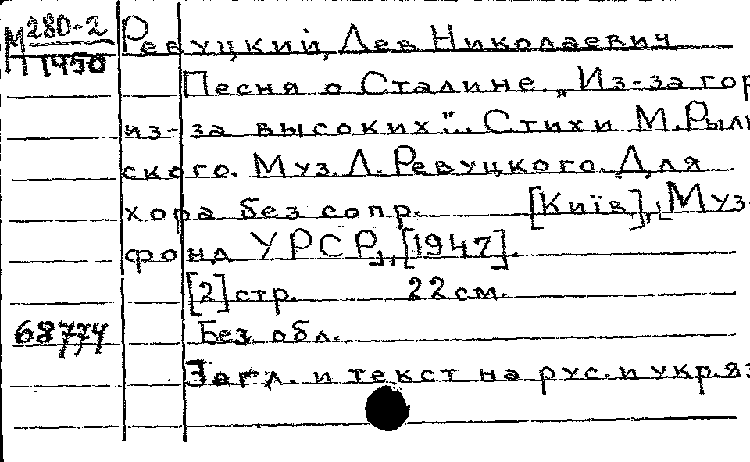 М 280-2
1450
Ревуцкий, Лев Николаевич
Песня о Сталине „Из-за гор
из-за высоких"... Стихи М. Рыль
ского. Муз. Л. Ревуцкого. Для
хора без сопр. [Київ], Муз-
фонд УРСР, [1947].
[2] стр. 22 см.
68774 Без обл.
Загл. и текст на рус. и укр. яз